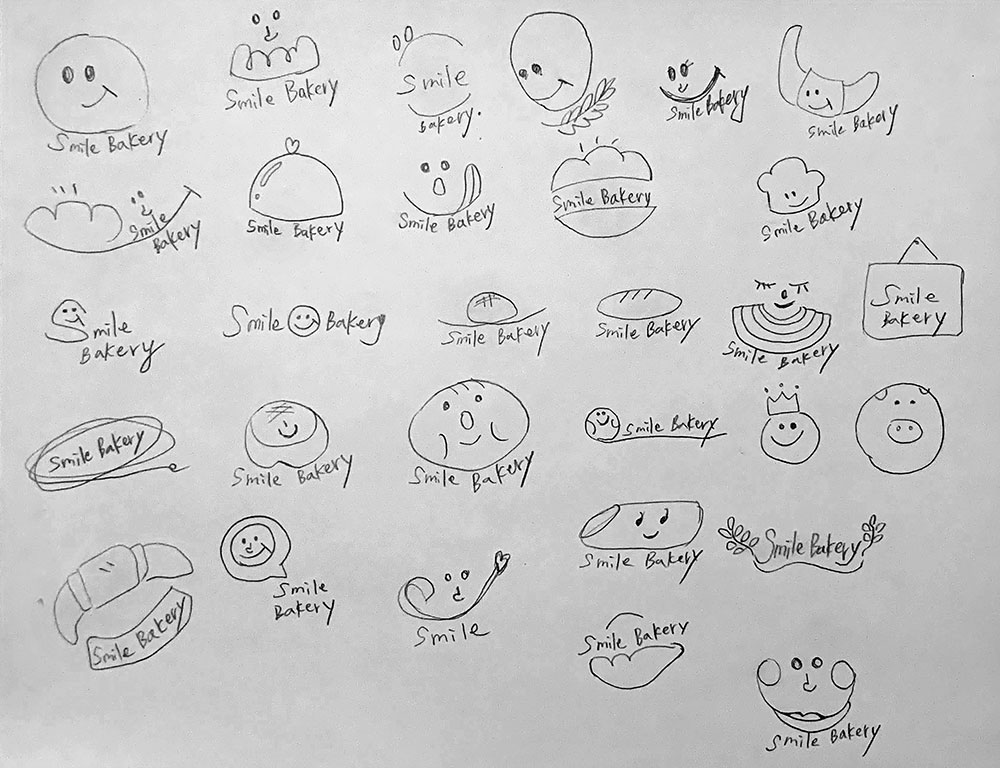 Smile Bakery
Smile Bakery
Smile
Bakery.
Smile Bakery
Smile Bakery
Smile
Bakery
Smile Bakery
Smile Bakery
Smile Bakery
Smile Bakery
Smile
Bakery
Smile Bakery
Smile Bakery
Smile Bakery
Smile Bakery
Smile
Bakery
Smile Bakery
Smile Bakery
Smile Bakery
Smile Bakery
Smile Bakery
Smile
Bakery
Smile
Smile Bakery
Smile Bakery
Smile Bakery
Smile Bakery